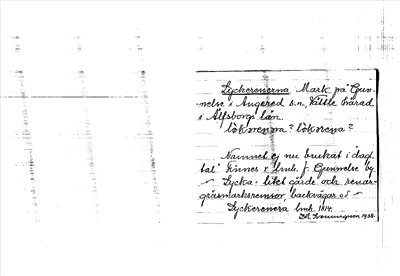 Lyckorenorna Mark på Gun-
nelse i Angered s:n, Vättle härad
i Älfsborgs län.
Namnet ej nu brukat i dagl.
tal. Finnes å lmk. f. Gunnelse by.
Lycka = litet gärde och renar =
gräsmarksremsor, backvägar o.d.
Lyckorenera lmk. 1814.
1938.